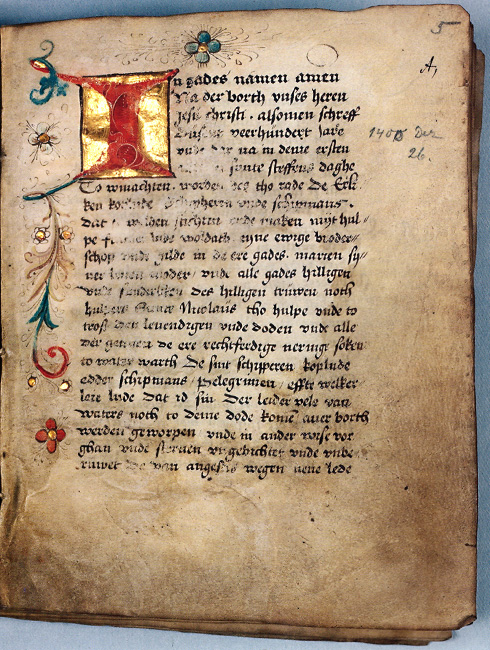 5
A,
In gades namen amen
Na der borth vnses heren
Jesu christi alsomen schreff
Dusent veerhundert jare
1400 Dez
vnde dar na in deme ersten
26.
in sunte steffens daghe
To winachten worden des tho rade De Erli
ken koplude Schypheren vnde schipmans
Dat se wolhen stichten vnde maken myt hul
pe vnde woldath eyne ewige broder
schop vnde gilde in de ere gades marien sy
ner leuen moder vnde alle gades hilligen
vnde sunderliken des hilligen truwen noth
hulpers Sunte Nicolaus tho hulpe vnde to
trost den leuendigen vnde doden vnde alle
der gennen de ere rechtferdige neringe soken
to water warth De sint schipheren koplude
edder schipmans pelegrimen effte welker
leye lude dat id sin Der leider vele van
waters noth to deme dode kome auer borth
werden geworpen vnde in ander wise vor
ghan vnde steruen vngebichtet vnde vnbe
ruwet van angestes wegen wene lede